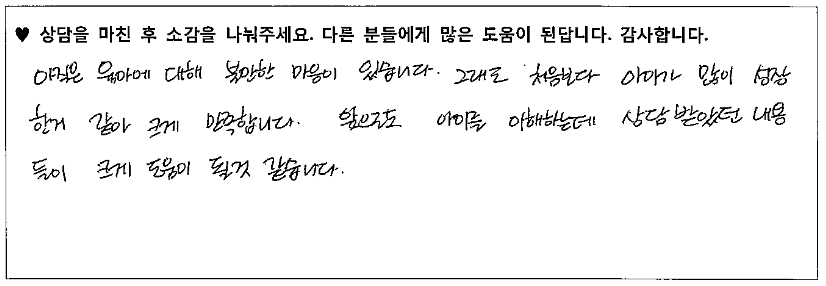 ♥ 상담을 마친 후 소감을 나눠주세요. 다른 분들에게 많은 도움이 된답니다. 감사합니다.
아직은 육아에 대해 불안한 마음이 있습니다. 그래도 처음보다 아이가 많이 성장
한거 같아 크게 만족합니다. 앞으로도 아이를 이해하는데 상담받았던 내용
들이 크게 도움이 될것 같습니다.